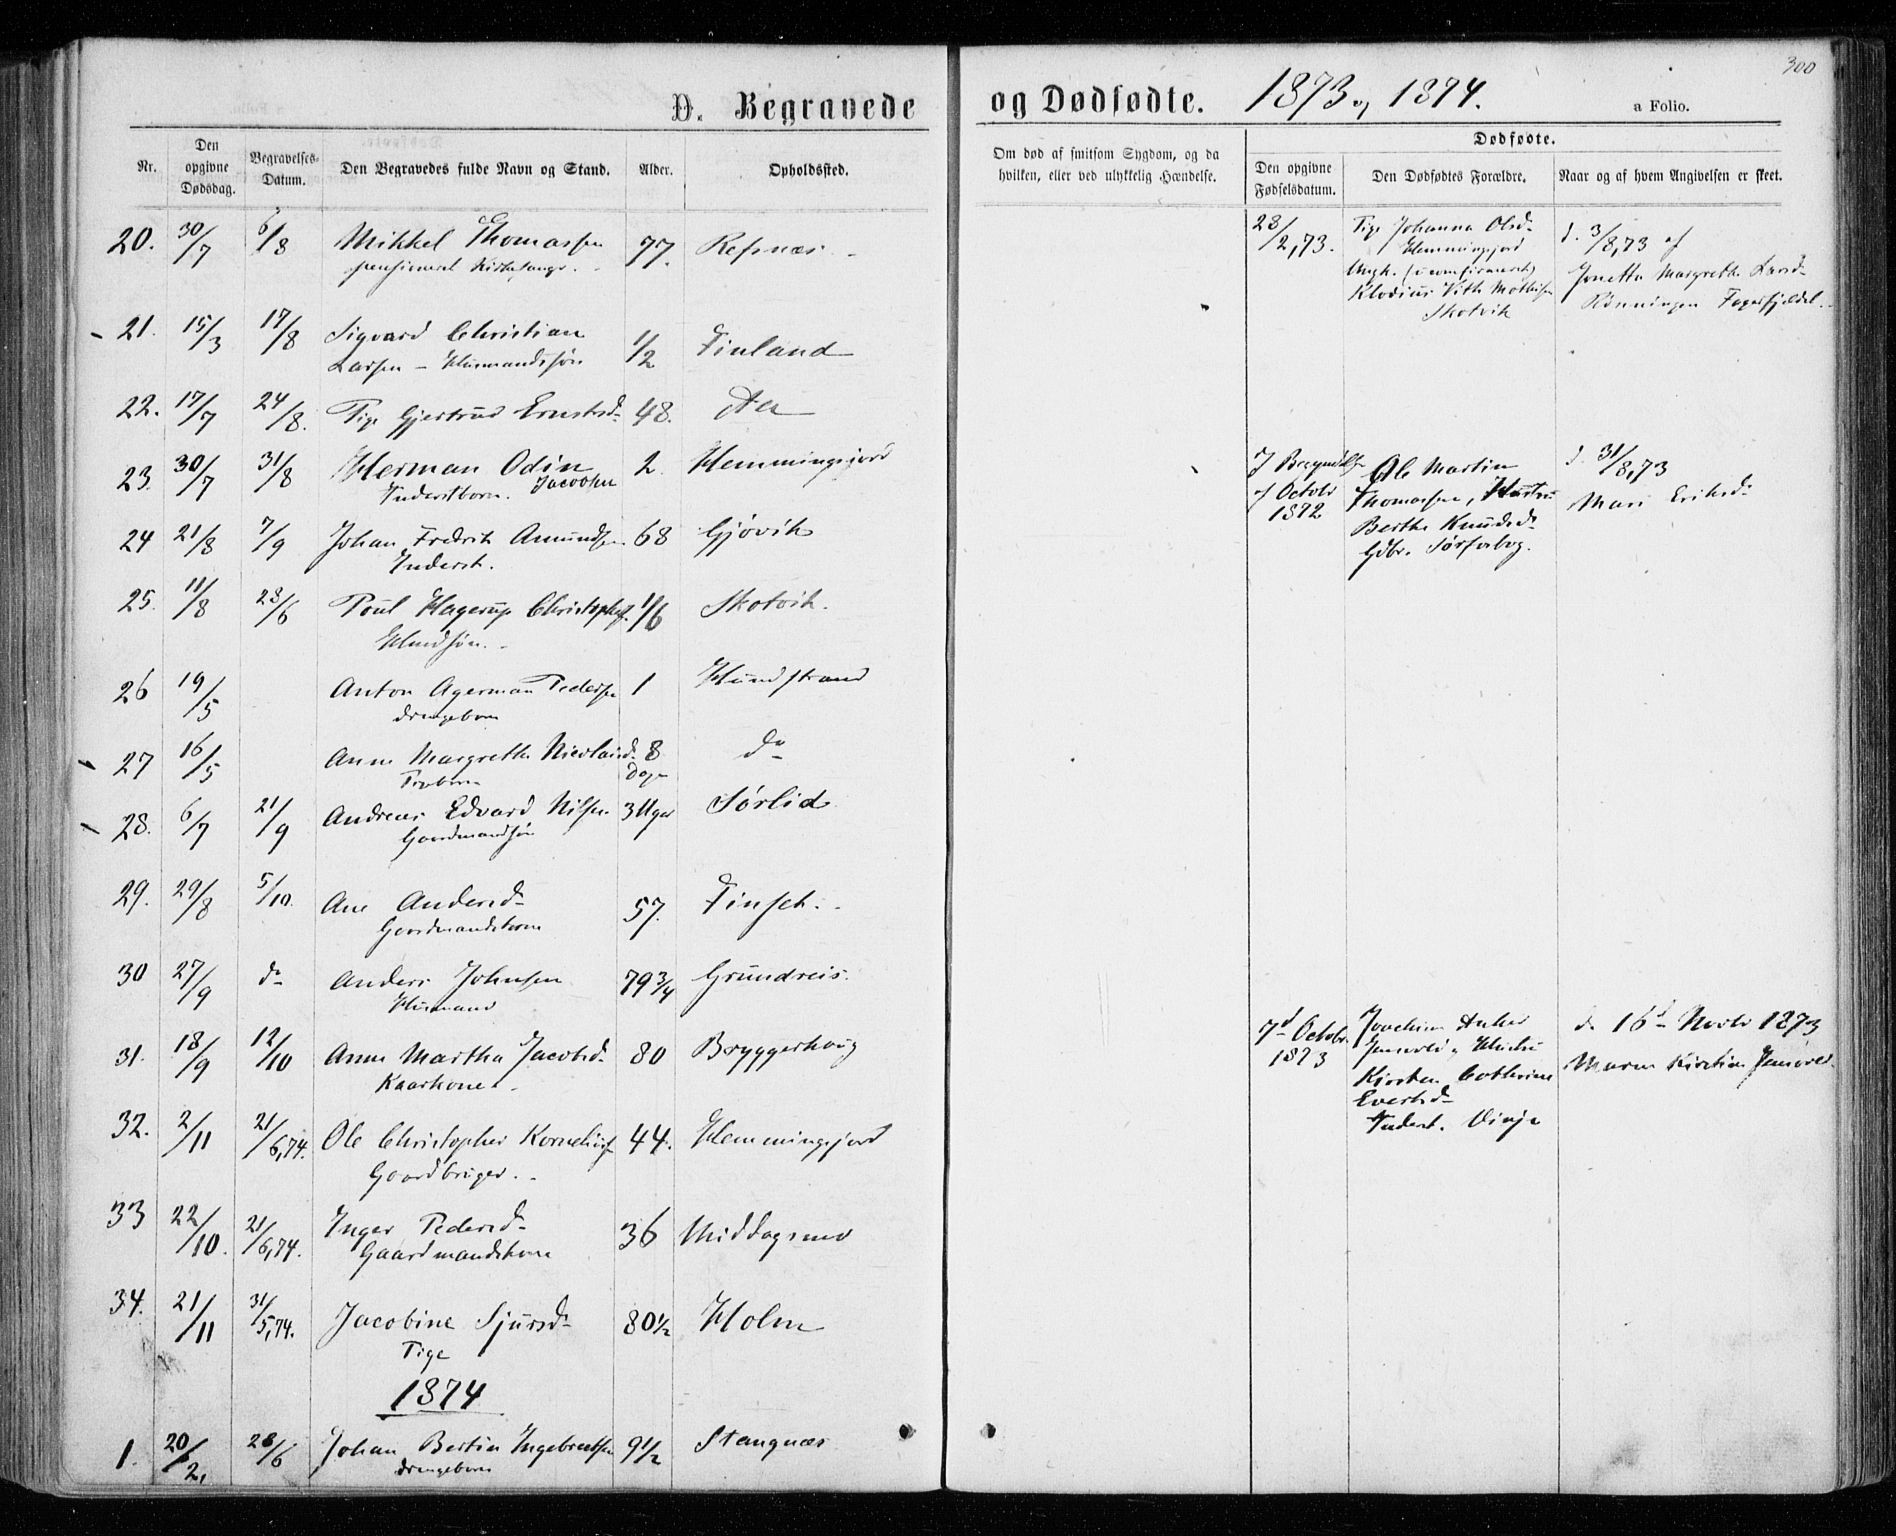 300
D. Begravede og Dødfødte. 1873 og 1874. a Folio.
Nr.
Den opgivne Dødsdag.
Begravelses-Datum.
Den Begravedes fulde Navn og Stand.
Alder.
Opholdssted.
Om død af smitsom Sygdom, og da hvilken, eller ved ulykkelig Hændelse.
Dødfødte.
Den opgivne Fødselsdatum.
Den Dødfødtes Forældre.
Naar og af hvem Angivelsen er skeet.
20. 30/7 6/8 Mikkel Thomassen 77. Refsnæs
pensioneret Kirkesanger
21. 15/3 17/8 Sigvard Christian
Larsen - Husmandssøn 1/2 Finland
22. 17/7 24/8. Pige Gjertrud Ernstsd. 48.
23. 30/7 31/8 Herman Odin 2 Hemmingsjord
Inderstbarn. Jacobsen
24 21/8 7/9 Johan Fredrik Amundsen 68 Gjøvik
Inderst.
25. 11/8 28/6 Poul Hagerup Christophs. 1/6 Skotvik.
26 19/5 Anton Agerman Pedersen 1 Hundstrand
drengebarn
27 16/5 Anne Margrethe Nicolaisd. 8 do
Dage
28. 6/7 21/9 Andreas Edvard Nilsen 3 Uger Sørlid
Gaardmandssøn
29. 29/8 5/10. Ane Andersd. 57. Finset.
Gaardmandskone
30 27/9 do Anders Johnsen 79 3/4 Grundreis.
Husmand
31. 18/9 12/10 Anne Martha Jacobsd. 80 Bryggerhoug
Kaarkone
32. 2/11 21/6,74. Ole Christopher Korneliuss. 44. Hemmingsjord
Gaardbruger.
33 22/10. 21/6,74. Inger Pedersd. 36 Middagsnes
Gaardmandskone
34. 21/11 31/5,74. Jacobine Sjursd. 80 1/2 Holm
Pige
1874
1. 20/2, 28/6 Johan Bertin Ingebrectsen 9 1/2 Stangnæs
drengebarn
28/2,73. Pige Johanna Olsd.
Hemmingsjord
Ungk. (uconfirmeret)
Klodius Vith Mathisen
Skotvik
d. 3/8,73 af
Jonetta Margrethe Larsd.
Rønningen Fagerfjeldet.
I Begyndelsen
af Octobr
1872
Ole Martin
Thomassen, Hustru
Berthe Knudsd.
Gdbr. Sørforbog.
d. 31/8,73
Mari Eriksd.
7d Octobr.
1873
Joachim Anker
Jensvold og Hustru
Kirsten Cathrine
Evertsd.
Inderst.
d. 16d Novbr 1873
Maren Kirstine Jensvold.